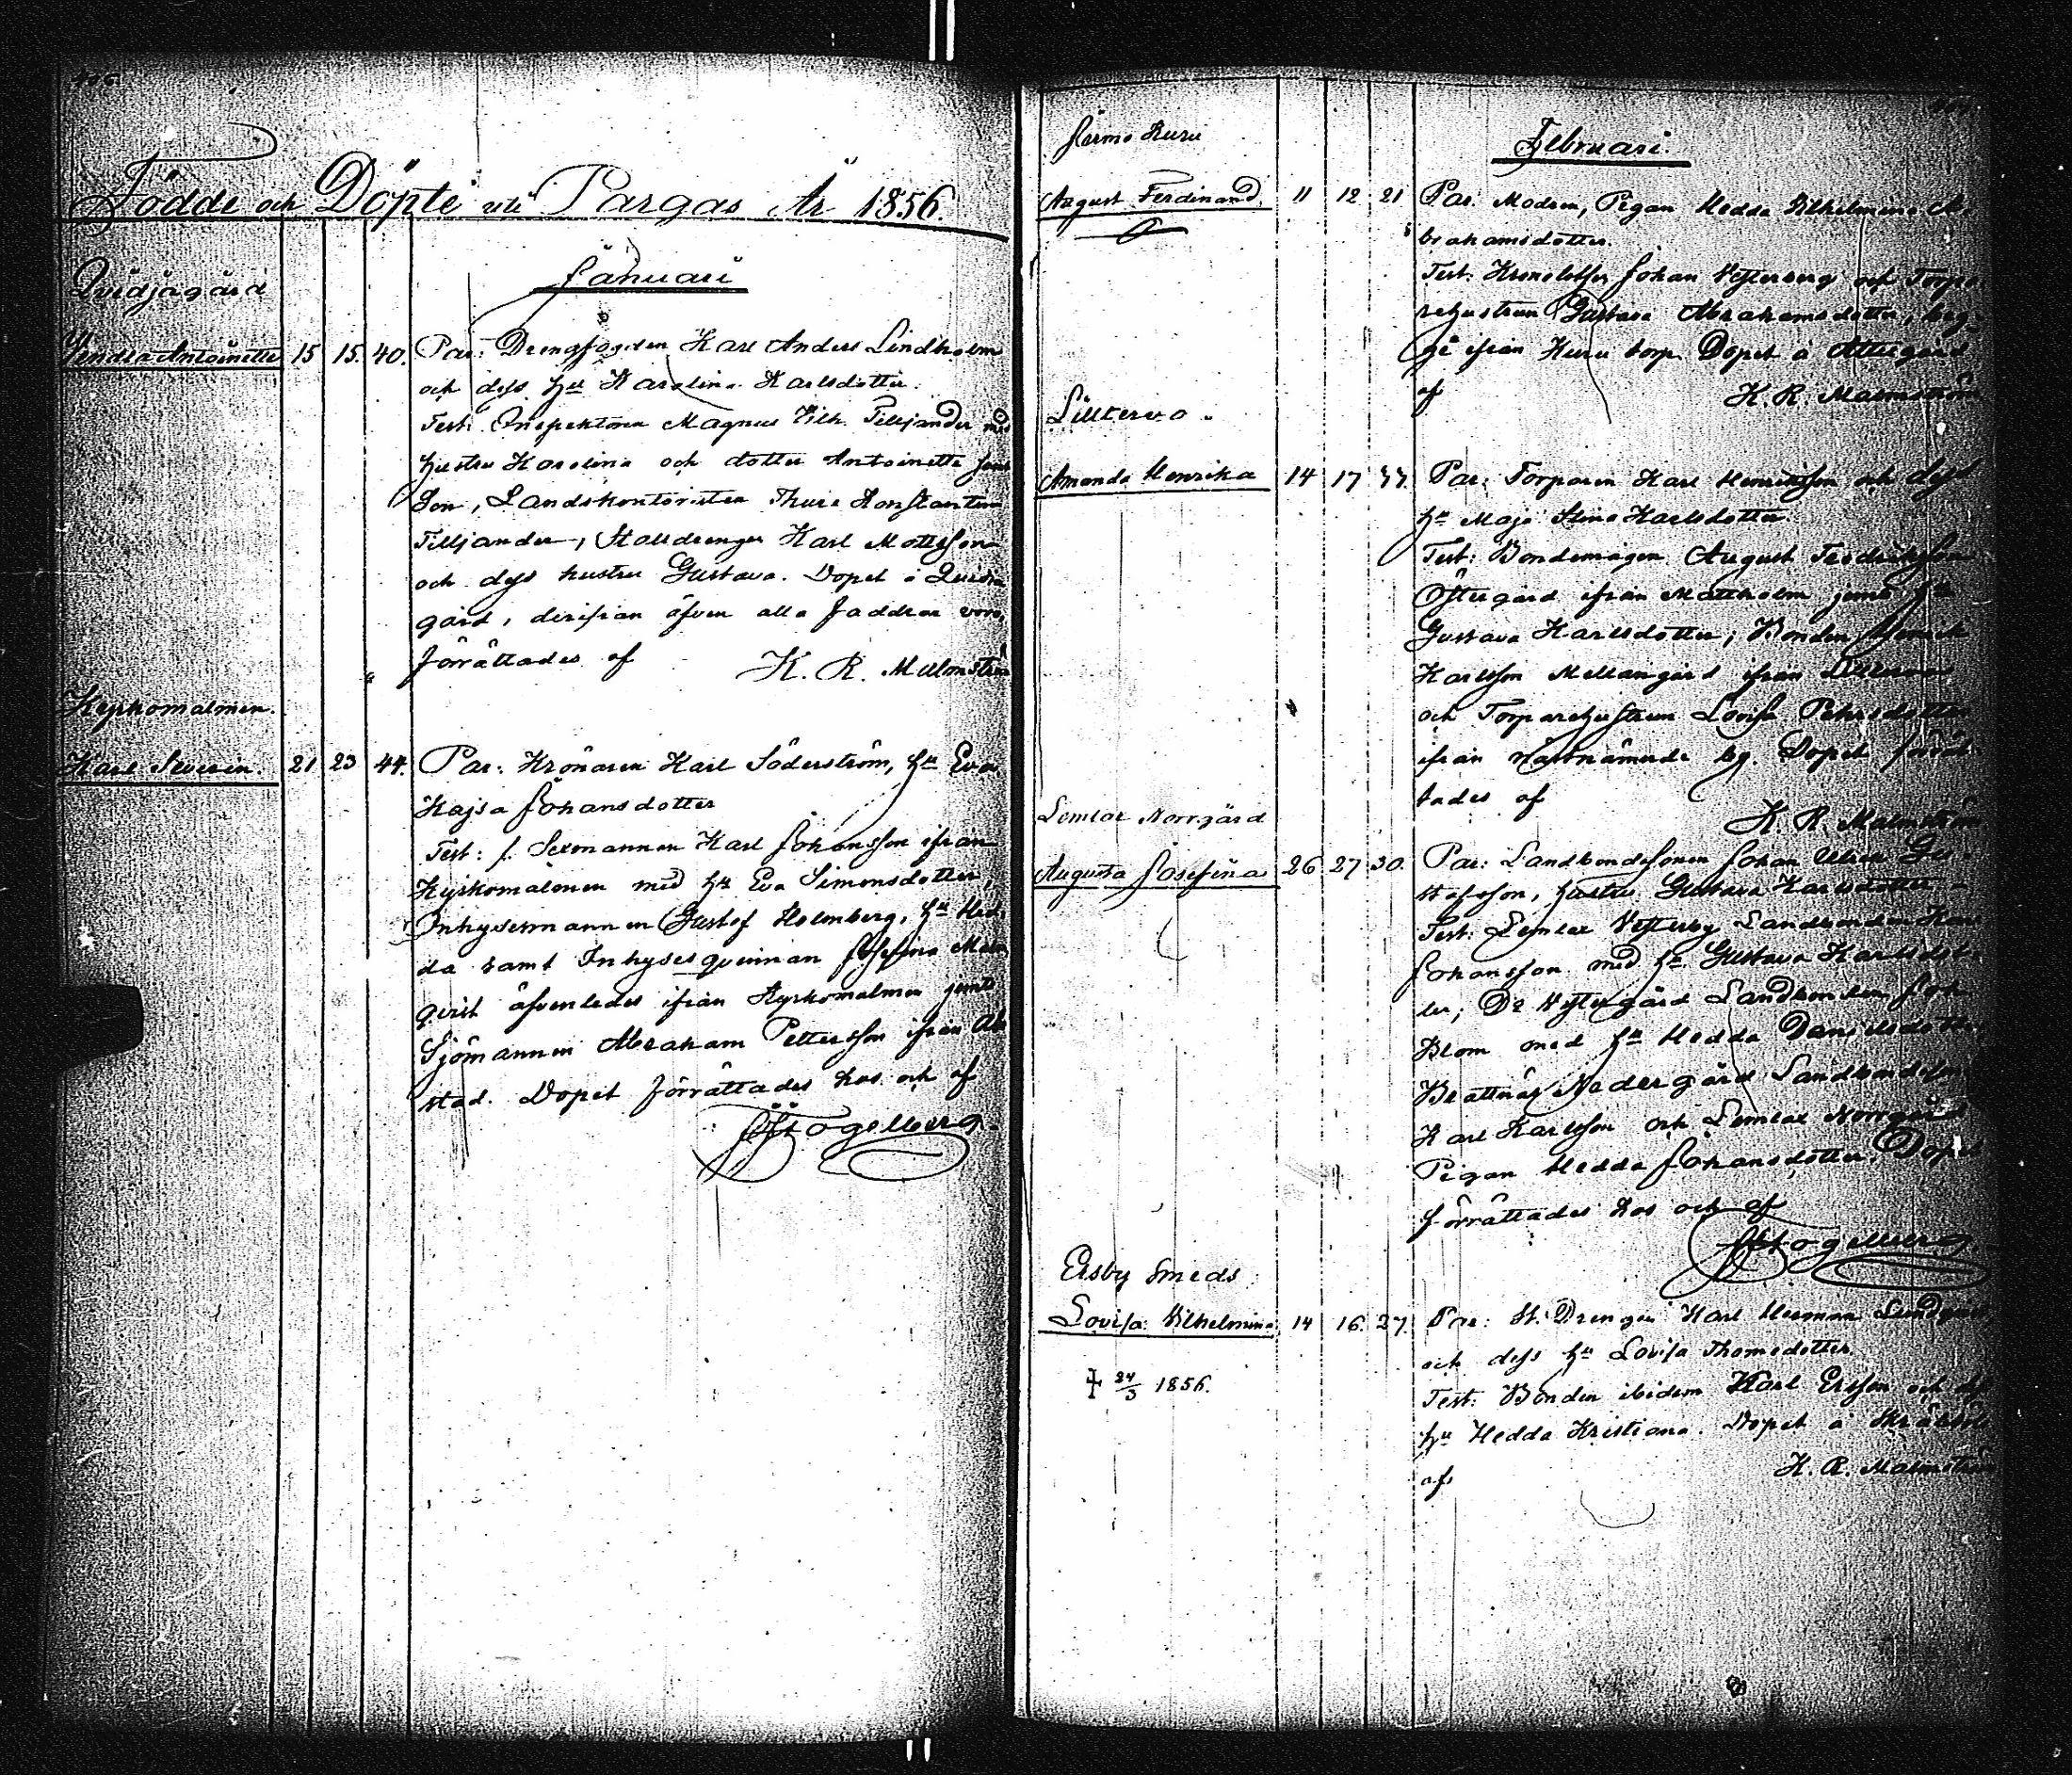 Födde och Döpte uti Pargas År 1856.
Januari
Qvidjägård
Vendla Antoinette 15 15. 40. Par: Drengfogden Karl Anders Lindholm
och dess hu Karolina Karlsdotter.
Test: Inspektoren Magnus Vilh. Tilljander med
hustru Karolina och dotter Antoinette samt
Son, Landskontoristen Thure Konstantin
Tilljander, Stalldrengen Karl Mattsson
och dess hustru Gustava. Dopet å Quidja
gård, derifrån äfven alla faddrar voro,
förrättades af K. R. Malmström
Kyrkomalmen.
Karl Severin. 21 23 44. Par: Krönaren Karl Söderström, hu Eva
Kajsa Johansdotter
Test: f. Sexmannen Karl Johansson ifrån
Kyrkomalmen med hu Eva Simonsdotter,
Inhysesmannen Gustof Holmberg, hu Hed-
da samt Inhysesqvinnan Josefina Malm
qvist äfvenledes ifrån Kyrkomalmen jemte
Sjömannen Abraham Pettersson ifrån Åbo
stad. Dopet förrättades hos och af
Februari.
Kuru
August Ferdinand. 11 12 21 Par: Modren, Pigan Hedda Vilhelmina A-
brahamsdotter.
Test: Johan Vesterberg och Torpa
rehustrun Gustava Abrahamsdotter, beg-
ge ifrån Kuru torp. Dopet å Attugård
af K. R. Malmström
Lilltervo.
Amanda Henrika 14 17 Par: Torparen Karl Henriksson och dess
hu Maja Stina Karlsdotter.
Test: Bondemågen August Fredriksson
Östergård ifrån Mattholm jemte hu
Gustava Karlsdotter, Bonden Henrik
Karlsson Mellangård ifrån
och Torparehustrun Lovisa Pehrsdotter
ifrån nästnämnde by. Dopet förrät
tades af
K. R. Malmström
Lemlax Norrgård
Augusta Josefina 26 27 30. Par: Landbondesonen Johan Ulrik Gu-
stafsson, hustru Gustava Karlsdotter.
Test: Lemlax Vesterby Landbonden Karl
Johansson med hu Gustava Karlsdot-
ter, Do Vestergård Landbonden Joh.
Blom med hu Hedda Danielsdotter,
Brattnäs Nedergård Landbondeson
Karl Karlsson och Lemlax Norrgård
Pigan Hedda Johansdotter. Dopet
förrättades hos och af
Ersby Smeds
Lovisa Vilhelmina 14 16. 27. Par: St. Drengen Karl Herman Lindqvist
och dess hu Lovisa Thomedotter.
† 24/3 1856.
Test: Bonden ibidem Karl Ersson och dess
hu Hedda Kristiana. Dopet å
af K. R. Malmström